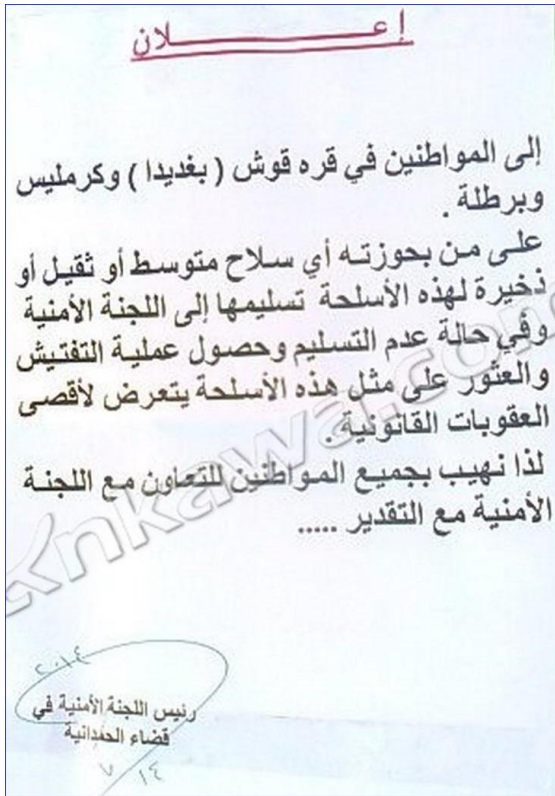 إعـــــــــلان
إلى المواطنين في قره قوش ( بغديدا ) وكرمليس
وبرطلة .
على من بحوزته أي سلاح متوسط أو ثقيل أو
ذخيرة لهذه الأسلحة تسليمها إلى اللجنة الأمنية
وفي حالة عدم التسليم وحصول عملية التفتيش
والعثور على مثل هذه الأسلحة يتعرض لأقصى
العقوبات القانونية .
لذا نهيب بجميع المواطنين للتعاون مع اللجنة
الأمنية مع التقدير .....
ankawa.com
٢٠١٤
رئيس اللجنة الأمنية في
قضاء الحمدانية
٧ / ١٤